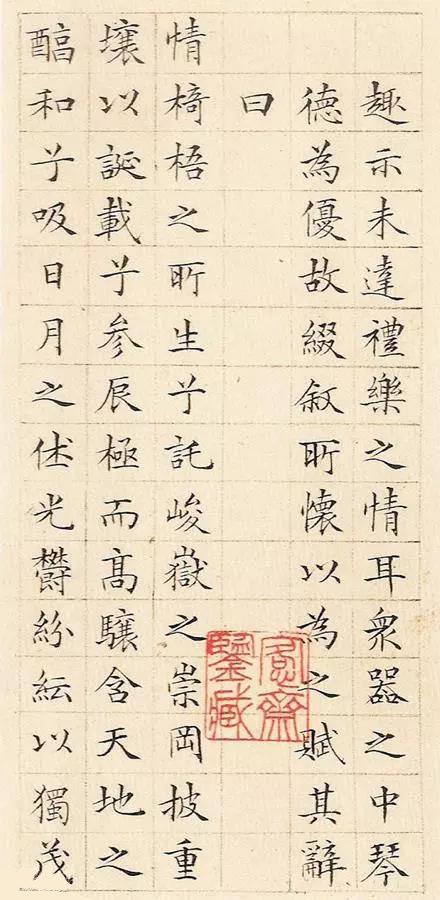 趣示未達禮樂之情耳衆器之中琴
德為優故綴叙所懷以為之賦其辭
曰
情椅梧之所生兮託峻嶽之崇岡披重
壤以誕載兮参辰極而高驤含天地之
醕和兮吸日月之休光鬱紛紜以獨茂
齋
鑒藏